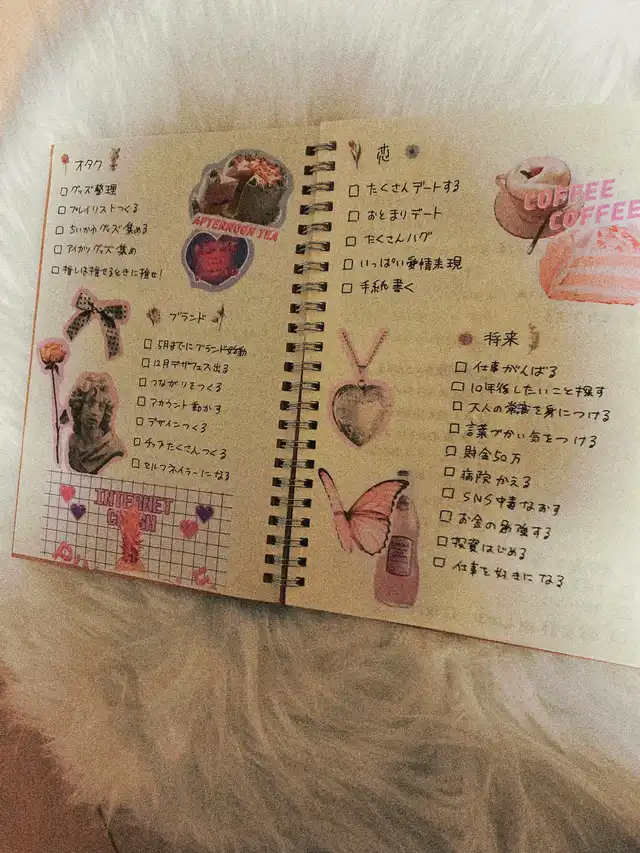 オタク
グッズ整理
プレイリストつくる
ちいかわグッズ集める
アイカツグッズ集め
推しは推せるときに推せ!
AFTERNOON TEA
ブランド
5月までにブランド始動
12月デザフェス出る
つながりをつくる
アカウント動かす
デザインつくる
チップたくさんつくる
セルフネイラーになる
INTERNET
恋
たくさんデートする
おとまりデート
たくさんハグ
いっぱい愛情表現
手紙書く
COFFEE
COFFEE
将来
仕事がんばる
10年後したいこと探す
大人の常識を身につける
言葉づかい気をつける
貯金50万
病院かえる
SNS中毒なおす
お金の勉強する
投資はじめる
仕事を好きになる